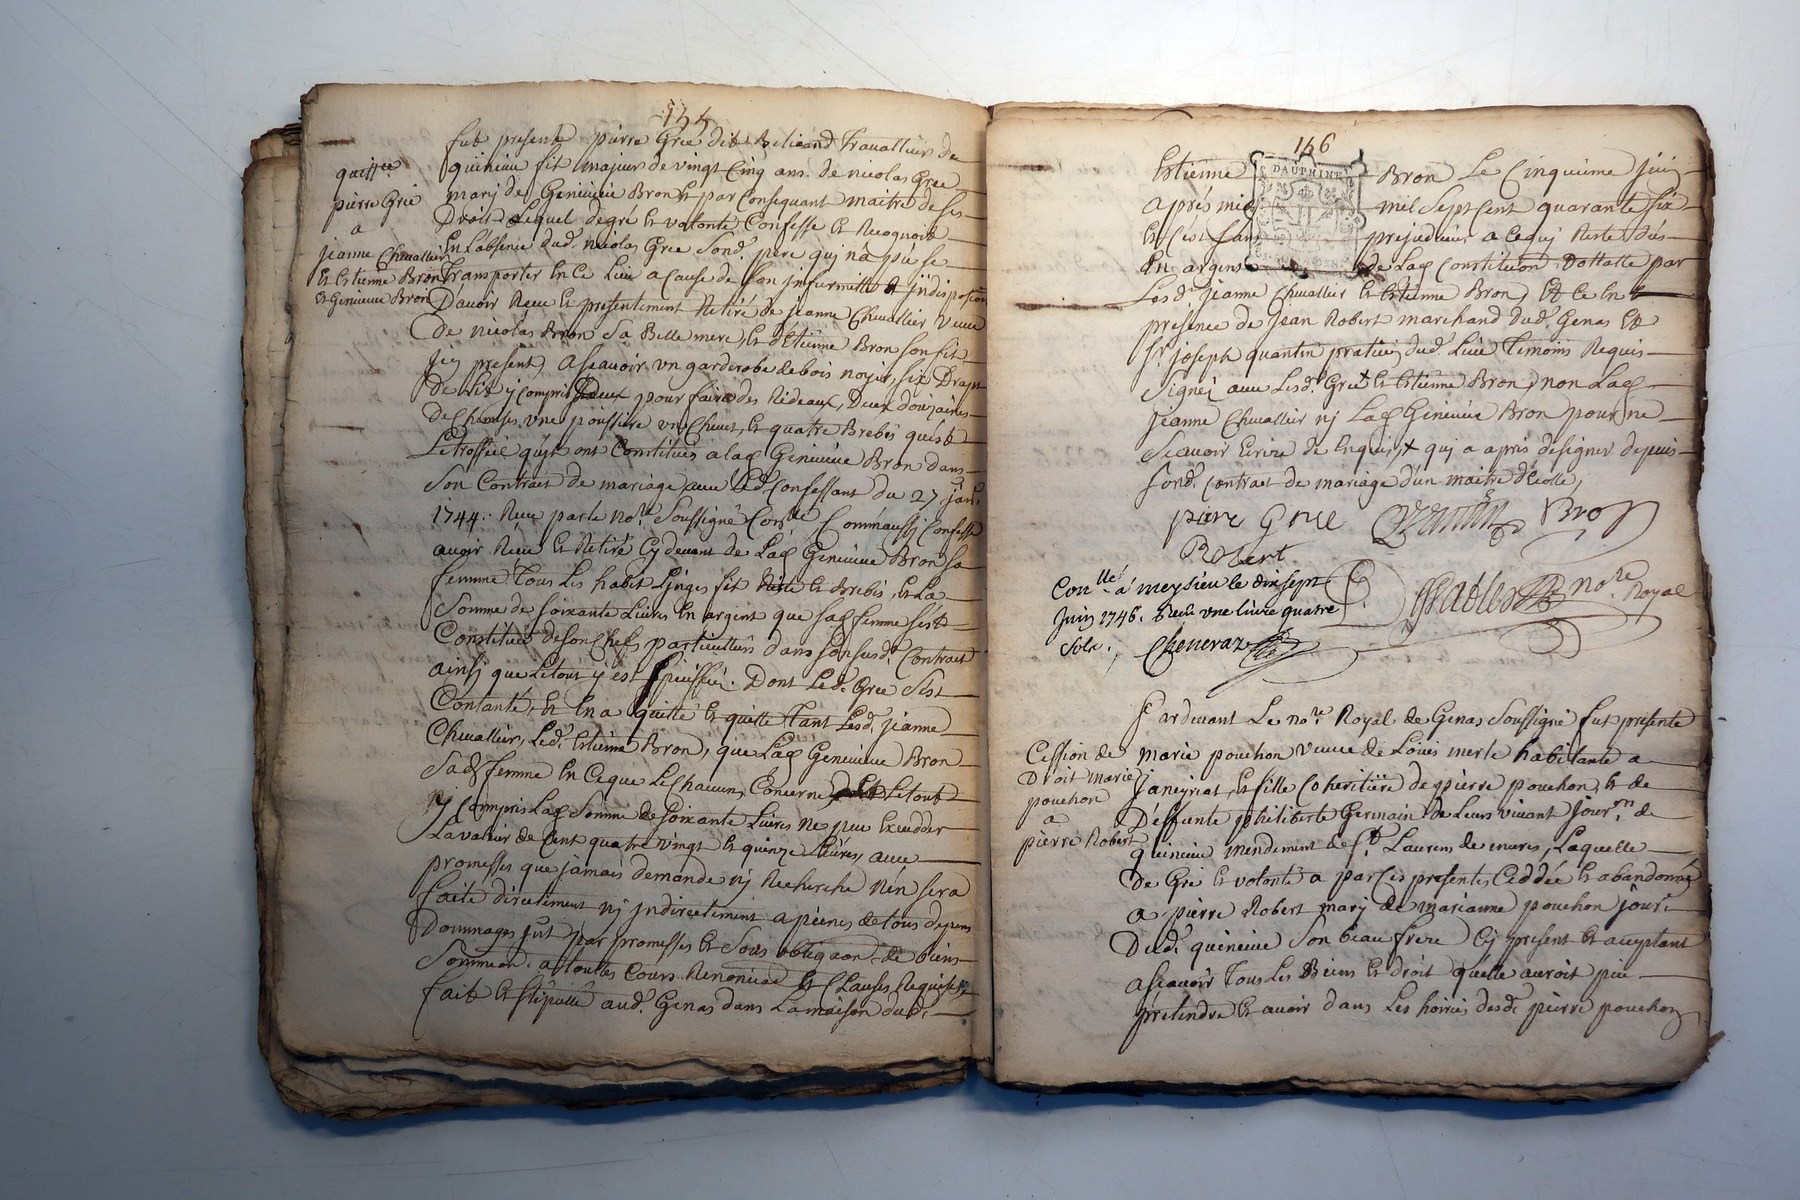 145
quittce
pierre Grée
a
jeanne Chevallier
et Estienne Bron
et Genieuve Bron
fut presente pierre Grée dit Travallieur de
quineiue fit majeur de vingt Cinq ans de nicolas Grée
marj de Genieuve Bron et par Consequant maitre de ses
Droits Lequel de gré et volonte Confesse et Recognoit
En Labsence dud. nicolas Gree Sond. pere quj n'a pu se
Transporter En Ce Lieu a Cause de Son jnfirmitté et jndisposition
Davoir Reçu et presentement Retiré de jeanne Chevallier veuve
de nicolas Bron Sa Belle mere, et d'Etienne Bron son fit
present, a scavoir un garderobe de bois noyer, six Draps
de Lit y compris Deux pour faire des Rideaux, Deux douzaines
de Chemises, une
et quatre Brebis
ont Constitués a lad. Genieuve Bron dans
Son Contract de mariage avec Led. Confessant du 27 janv.
1744. Reçu par le no.re Soussigné Con.llé Comme aussj Confesse
avoir Reçu et Retiré Cydevant de Lad. Genieuve Bron Sa
femme Tous Les habits Linges et Brebis, et La
Somme de Soixante Livres En argent que Sad. femme s'est
Constituée de son Chef particullier dans Son susd. Contract
ainsj que Le tout y est Spéciffié. Dont Led. Grée S'est
Contanté, et En a quitté et quitte Tant Lesd. jeanne
Chevallier, Led. Estienne Bron, que Lad. Genieuve Bron
Sad. femme En Ce que Les Chacun Concerne Le tout
y Compris Lad. Somme de Soixante Livres ne peu Excedder
La valeur de Cent quatre vingt et quinze Livres, avec
promesses que jamais demande nj Recherche n'en sera
faite directement nj jndirectement a peines de tous depens
Dommages par promesses et Sous obligaon de biens
Soumission a touttes Cours Renonciaõ et Clauses Requises,
fait et Stipullé aud. Genas dans La maison dud.
146
DAUPHINE
Estienne Bron Le Cinquieme juin
apres midj mil Sept Cent quarante Six
et C'est Sans prejudice a Ce quj Reste dus
En argent de Lad. Constitution Dottalle par
Lesd. jeanne Chevallier et Estienne Bron, Et Ce En
presence de jean Robert marchand dud. Genas Et
Sr. joseph quantin praticien dud. Lieu Temoins Requis
Signés avec Lesd. Grée et Estienne Bron, non Lad.
jeanne Chevallier nj Lad. Genieuve Bron pour ne
Scavoir Ecrire de Enquis, + quj a apris de signer depuis
Sond. Contract de mariage d'un maitre d'Ecolle,
piere Grée Quantin Bron
Robert
Con.llé à meysieu le dix sept
Juin 1746. Reçu une livre quatre
Sols. Cheneraz
no.re Royal
Cession de
Droit marie
pouchon
a
pierre Robert
Pardevant Le no.re Royal de Genas Soussigné fut presente
marie pouchon veuve de Loüis merle habitante a
janeyriat, et fille Coheritiere de pierre pouchon, et de
Deffunte philiberte Germain de Leurs vivant jour.rs de
quineiue mendement de St. Laurens de mures, Laquelle
de Gré et volonté a par Ces presentes Ceddée et abandonné
a pierre Robert marj de marianne pouchon jour.r
Dud. quineiue Son beau frere Cy present et acceptant
a scavoir Tous Les Biens et droit qu'elle auroit pu
pretendre et avoir dans Les hoiries desd. pierre pouchon